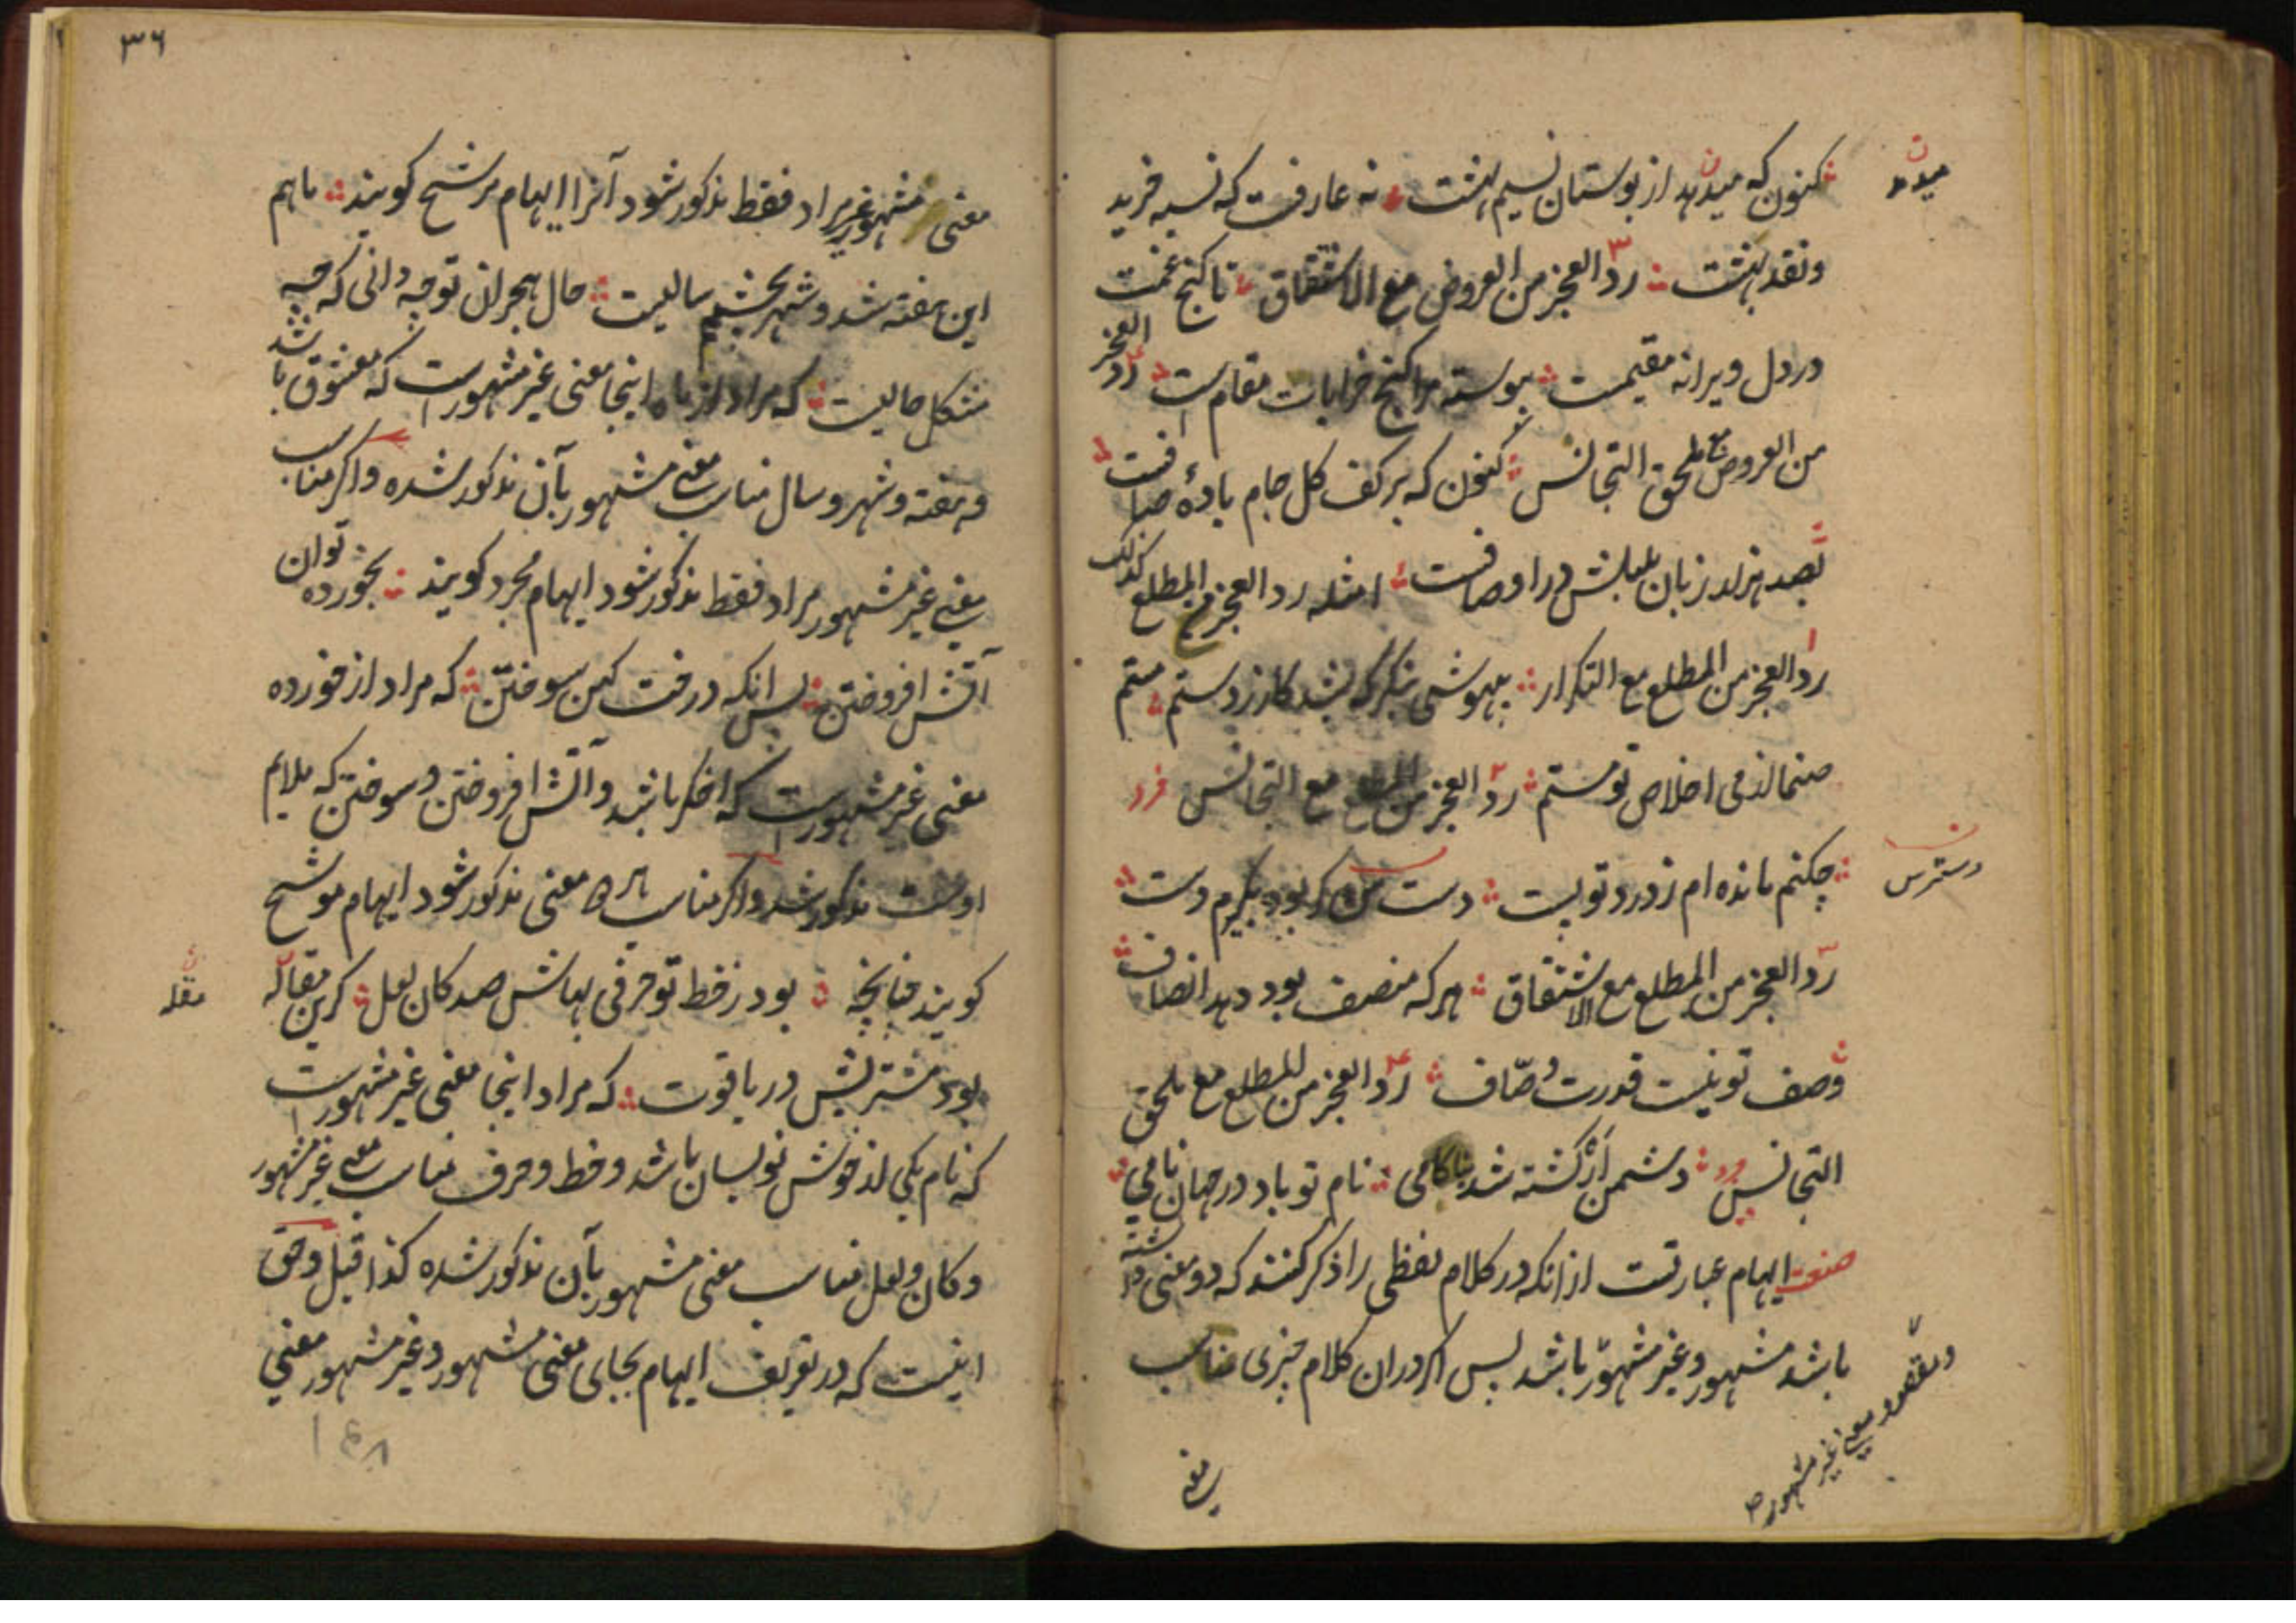 کنون که میدهد از بوستان نسیم بهشت نه عارفست که نسیه خرید
میدمد
ونقد بهشت رد العجز من العروض مع الاشتقاق تا کنج غمت
در دل ویرانه مقیمست پیوسته مرا کنج خرابات مقام است رد العجز
من العروض مع ملحق التجانس کنون که بر کف کل جام باده صافست
بصد هزار زبان بلبلش در اوصافست امثله رد العجز من المطلع کذلک
رد العجز من المطلع مع التکرار بیهوشی که بشد کار ز دستم ستم
صنما از می اخلاص تو مستم رد العجز من المطلع مع التجانس فرد
چکنم مانده ام ز درد تو پست دست من کر بود بکیرم دست
دسترس
رد العجز من المطلع مع الاشتقاق هر که منصف بود دهد انصاف
وصف تو نیست قدرت وصّاف رد العجز من المطلع مع ملحق
التجانس فرد دشمن ار کشته شد بناکامی نام تو باد در جهان نامی
صنعت ایهام عبارتست از انکه در کلام لفظی را ذکر کنند که دو معنی داشته
باشد مشهور و غیر مشهور باشد پس اکر دران کلام چیزی مناسب
ومقصود معنی غیر مشهور
معنی
۳۶
معنی مشهور غیر مراد فقط مذکور شود آنرا ایهام مرشح کویند ماهم
این هفته شد و شهر بچشمم سالیست حال هجران تو چه دانی که چه
مشکل حالیست که مراد از ماه اینجا معنی غیر مشهور است که معشوق باشد
و هفته و شهر و سال مناسب معنی مشهور بآن مذکور شده واکر مناسب
معنی غیر مشهور مراد فقط مذکور شود ایهام مجرد کویند بخورده توان
آتش افروختن پس انکه درخت کهن سوختن که مراد از خورده
معنی غیر مشهور است که اخکر باشد و آتش افروختن و سوختن که ملایم
اوست مذکور شد واکر مناسب هر دو معنی مذکور شود ایهام موشح
کویند چنانچه بود ز خط تو حرفی بهاش صد کان لعل کر ابن مقاله
مقله
بود مشتریش در یاقوت که مراد اینجا معنی غیر مشهور است
که نام یکی از خوش نویسان باشد و خط و حرف مناسب معنی غیر مشهور
و کان و لعل مناسب معنی مشهور بآن مذکور شده کذا قیل وحق
اینست که در تعریف ایهام بجای معنی مشهور و غیر مشهور معنی